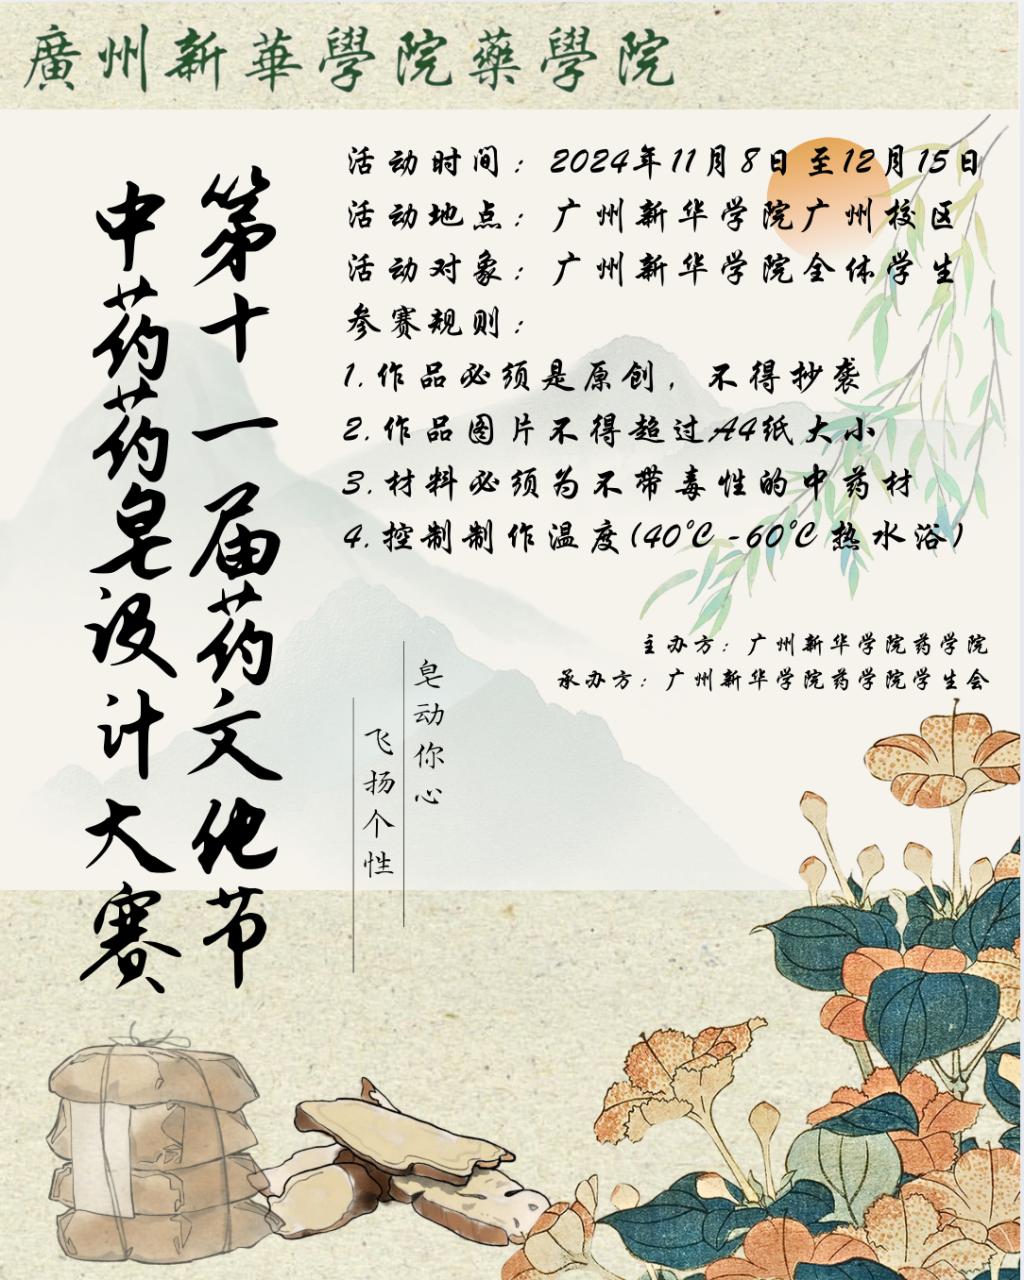 廣州新華學院藥學院
第十一届药文化节
中药药皂设计大赛
活动时间：2024年11月8日至12月15日
活动地点：广州新华学院广州校区
活动对象：广州新华学院全体学生
参赛规则：
1.作品必须是原创，不得抄袭
2.作品图片不得超过A4纸大小
3.材料必须为不带毒性的中药材
4.控制制作温度(40℃-60℃热水浴)
主办方：广州新华学院药学院
承办方：广州新华学院药学院学生会
皂动你心
飞扬个性